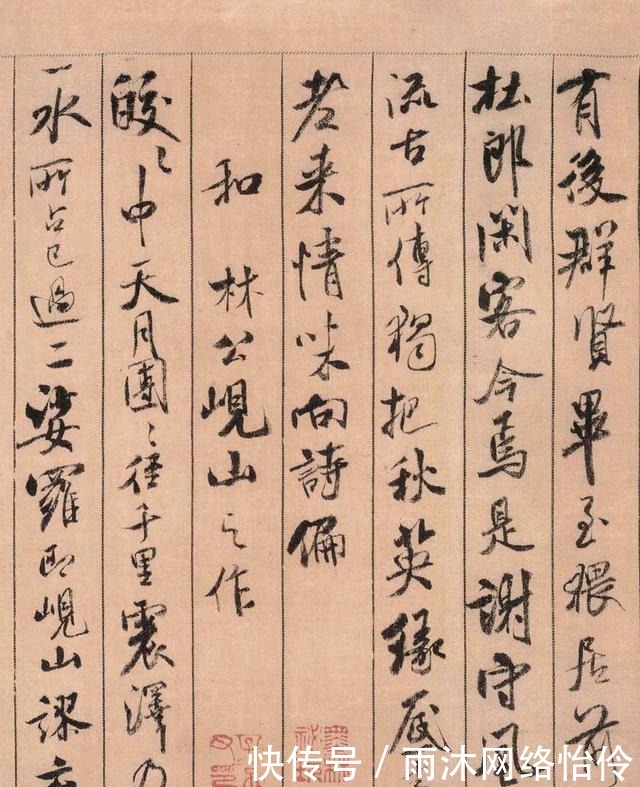 有後群賢畢至猥居前
杜郎閑客今焉是謝守風
流古所傳獨把秋英緣底
老来情味向詩偏
和林公峴山之作
皎〻中天月團〻徑千里震澤乃
一水所占已過二娑羅即峴山謬云
快传号/雨沐网络怡伶